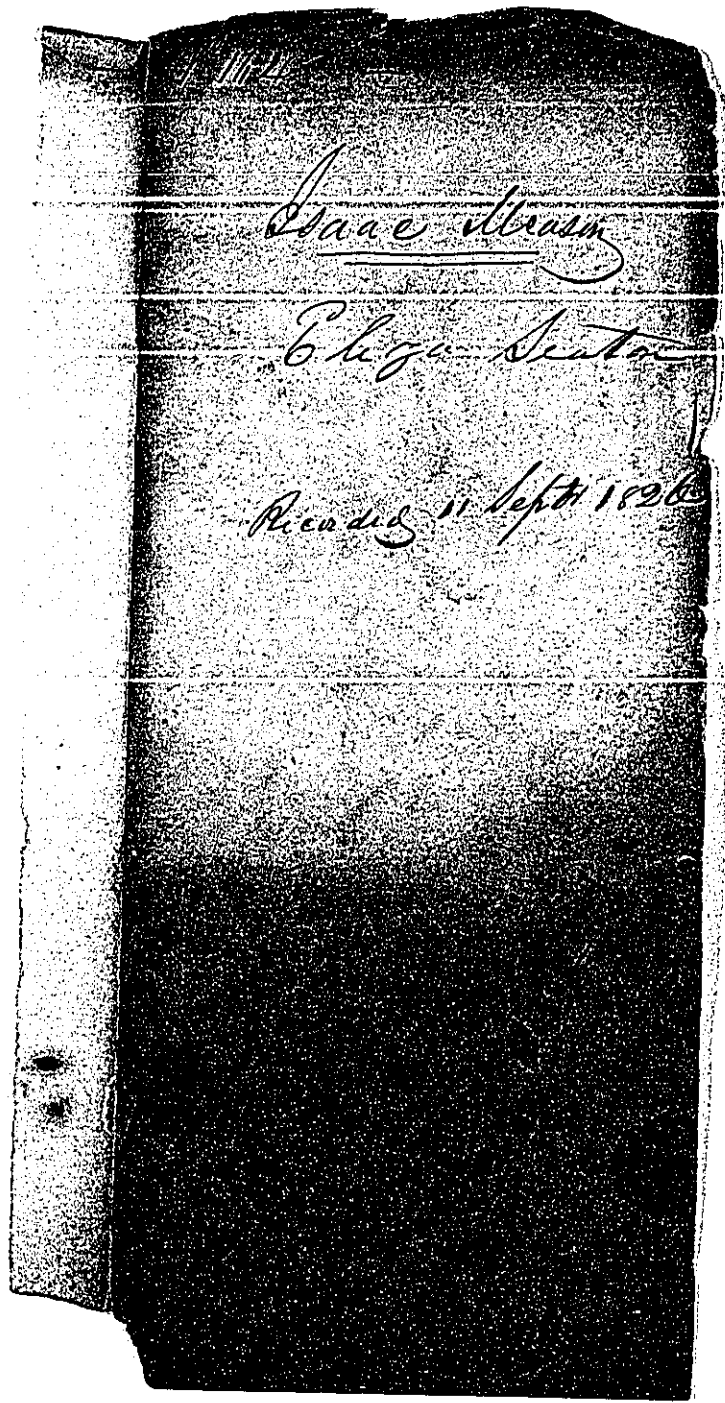 Isaac Meason
Eliza Seaton
Recorded 11 Sept 1826